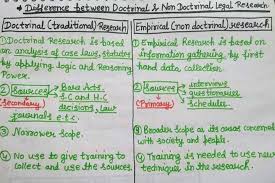 * Difference between Doctrinal & Non Doctrinal Legal Research
Doctrinal (traditional) Research
1) Doctrinal Research is based
on analyses of case laws, statutes
by applying Logic and Reasoning
Power.
2) Sources → Bare Acts.
(Secondary) S.C and H.C
decisions, Law
journals etc.
3) Narrower Scope.
4) No use to give training to
collect and use the sources.
Empirical (non doctrinal) research
1) Empirical Research is based on
information gathering by first
hand data, collection.
2) Sources → interviews
(Primary) questionnaires
schedules
3) Broader Scope as its cause concerned
with society and people.
4) Training is needed to use new
technique in the research.